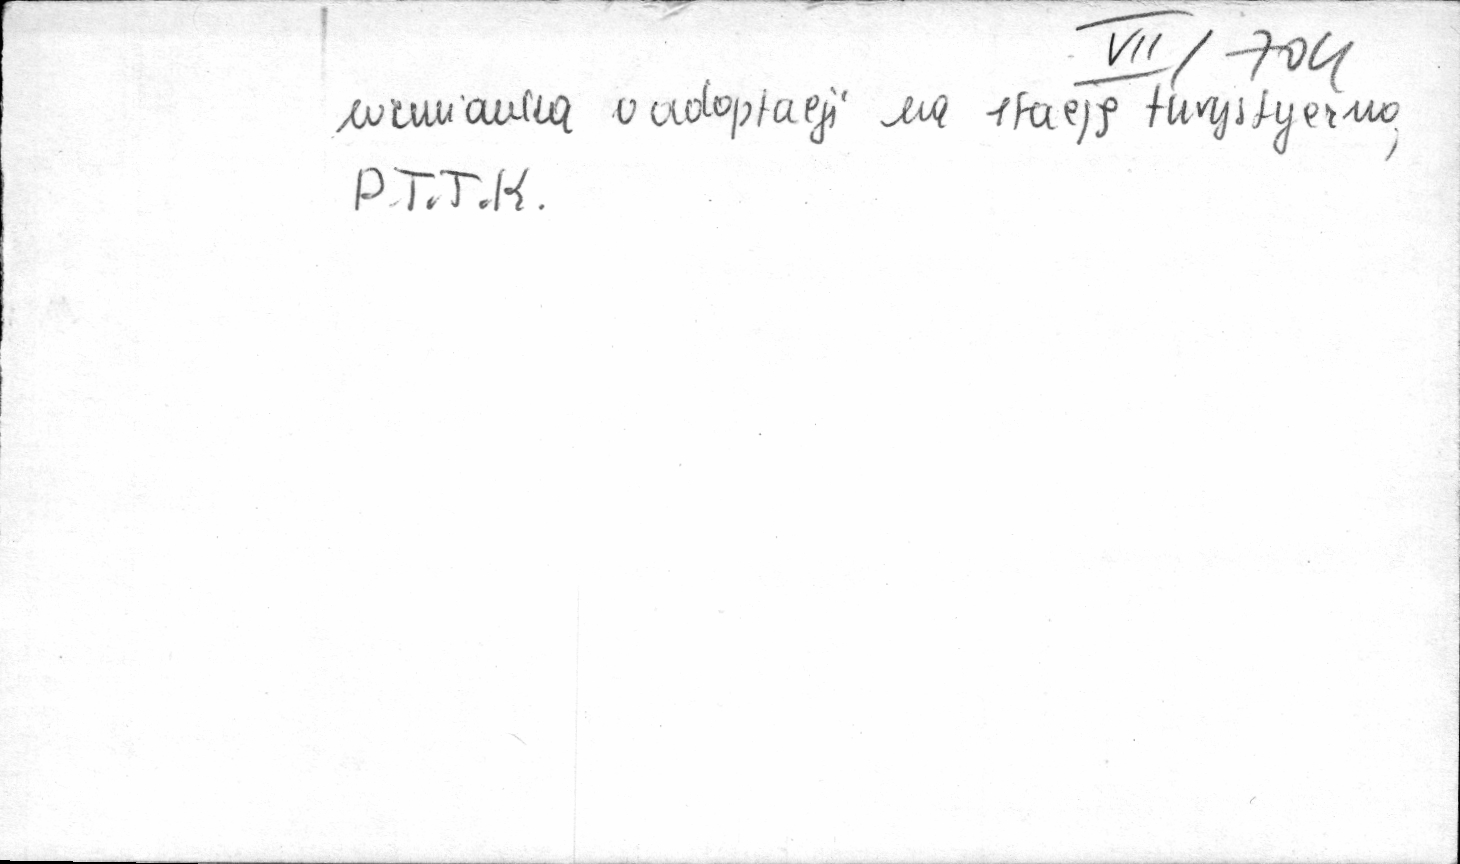 VII/704
wzmianka o adoptacji na stację turystyczną
P.T.T.K.